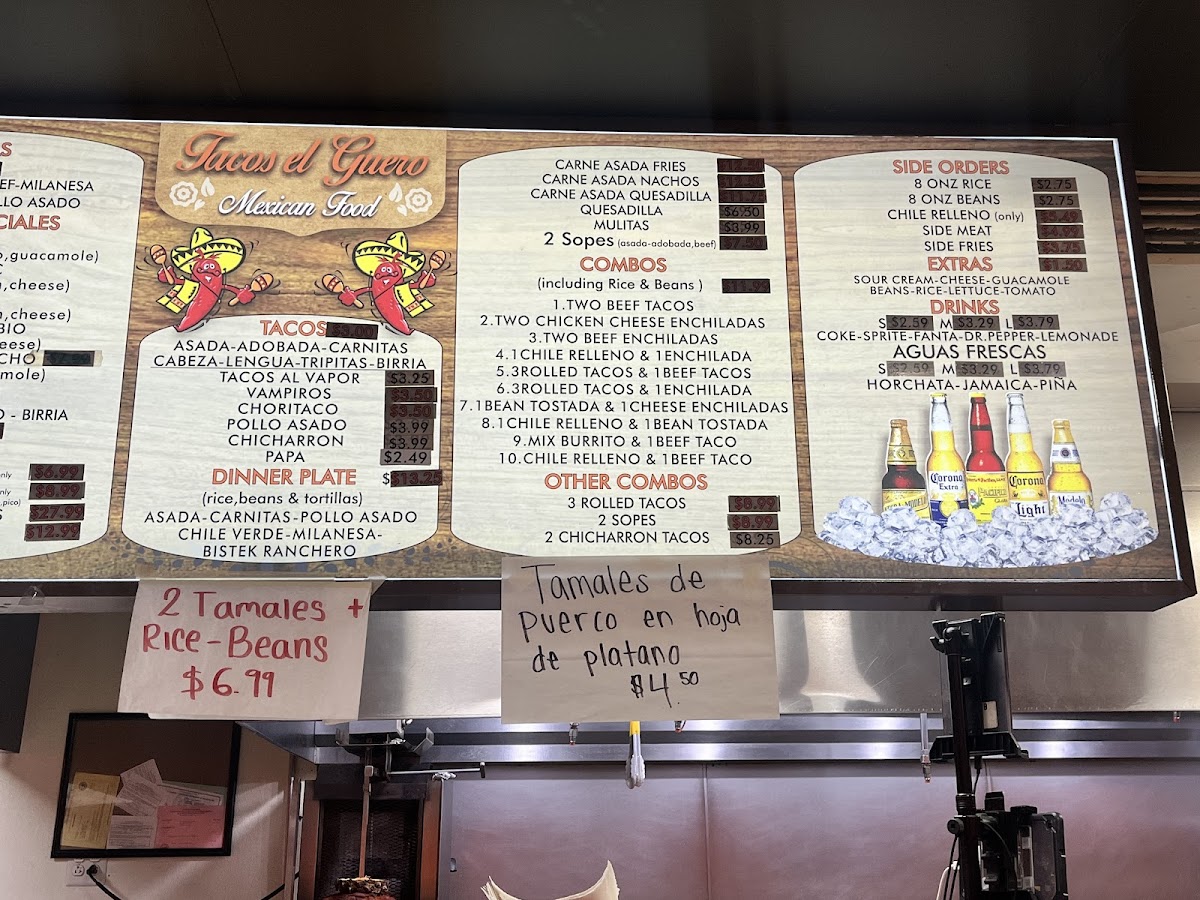 EF-MILANESA
LLO ASADO
CIALES
o,guacamole)
n,cheese)
n,cheese)
BIO
eese)
CHO
mole)
O - BIRRIA
only $6.99
only $8.99
,pico)
S $27.99
$12.99
Tacos el Guero
Mexican Food
TACOS $3.00
ASADA-ADOBADA-CARNITAS
CABEZA-LENGUA-TRIPITAS-BIRRIA
TACOS AL VAPOR $3.25
VAMPIROS $3.50
CHORITACO $3.50
POLLO ASADO $3.99
CHICHARRON $3.99
PAPA $2.49
DINNER PLATE $13.25
(rice,beans & tortillas)
ASADA-CARNITAS-POLLO ASADO
CHILE VERDE-MILANESA-
BISTEK RANCHERO
CARNE ASADA FRIES
CARNE ASADA NACHOS
CARNE ASADA QUESADILLA
QUESADILLA $6.50
MULITAS $3.99
2 Sopes (asada-adobada,beef) $7.50
COMBOS
(including Rice & Beans ) $11.99
1.TWO BEEF TACOS
2.TWO CHICKEN CHEESE ENCHILADAS
3.TWO BEEF ENCHILADAS
4.1CHILE RELLENO & 1ENCHILADA
5.3ROLLED TACOS & 1BEEF TACOS
6.3ROLLED TACOS & 1ENCHILADA
7.1BEAN TOSTADA & 1CHEESE ENCHILADAS
8.1CHILE RELLENO & 1BEAN TOSTADA
9.MIX BURRITO & 1BEEF TACO
10.CHILE RELLENO & 1BEEF TACO
OTHER COMBOS
3 ROLLED TACOS $8.99
2 SOPES $8.99
2 CHICHARRON TACOS $8.25
SIDE ORDERS
8 ONZ RICE $2.75
8 ONZ BEANS $2.75
CHILE RELLENO (only) $5.49
SIDE MEAT $4.99
SIDE FRIES $3.75
EXTRAS $1.50
SOUR CREAM-CHEESE-GUACAMOLE
BEANS-RICE-LETTUCE-TOMATO
DRINKS
S $2.59 M $3.29 L $3.79
COKE-SPRITE-FANTA-DR.PEPPER-LEMONADE
AGUAS FRESCAS
S $2.59 M $3.29 L $3.79
HORCHATA-JAMAICA-PIÑA
Corona
Extra
Corona
Light
Modelo
2 Tamales +
Rice-Beans
$6.99
Tamales de
puerco en hoja
de platano
$4.50